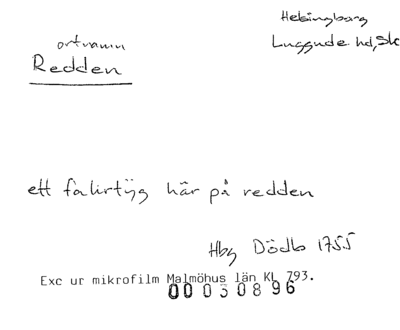 Helsingborg
ortnamn
Luggude hd, Sk
Redden
ett farlirtÿg här på redden
Hbg Dödb 1755
Exc ur mikrofilm Malmöhus län KL 793.
00 030896